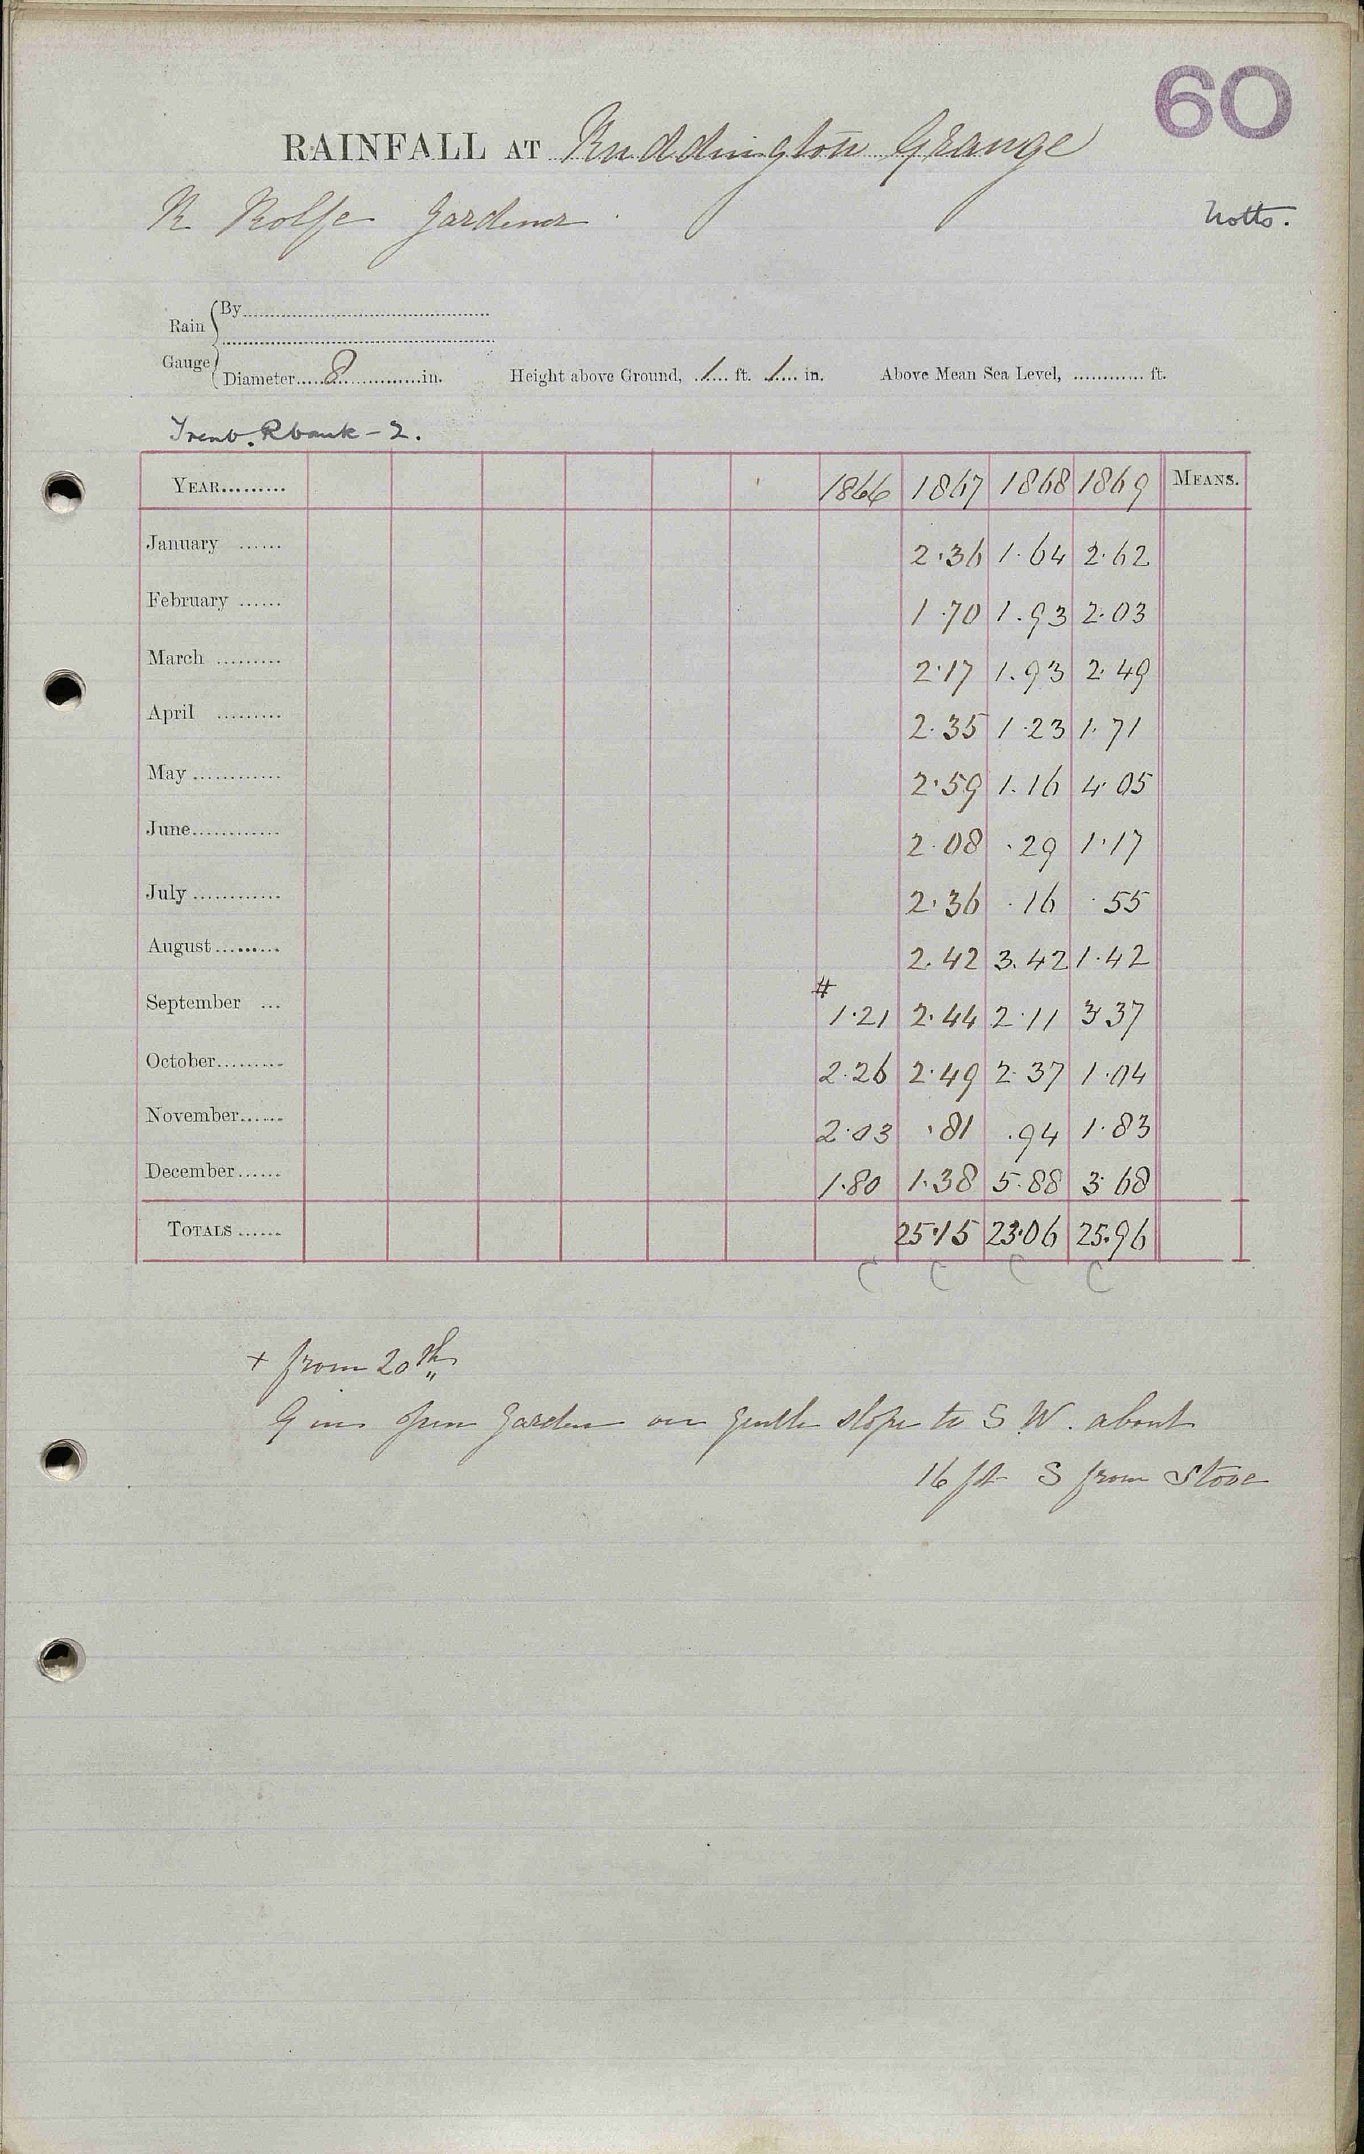 60
RAINFALL AT Ruddington Grange
R Rolfe Gardener
Notts.
Rain Gauge { By
Diameter 8 in. Height above Ground, 1 ft. 1 in. Above Mean Sea Level, ft.
Trent. Rbank - 2.
YEAR 1866 1867 1868 1869 MEANS.
January 2.36 1.64 2.62
February 1.70 1.93 2.03
March 2.17 1.93 2.49
April 2.35 1.23 1.71
May 2.59 1.16 4.05
June 2.08 .29 1.17
July 2.36 .16 .55
August 2.42 3.42 1.42
September # 1.21 2.44 2.11 3.37
October 2.26 2.49 2.37 1.04
November 2.03 .81 .94 1.83
December 1.80 1.38 5.88 3.68
TOTALS 25.15 23.06 25.96
C C C C
+ from 20th
G in open garden on gentle slope to S W. about
16 ft S from Stove